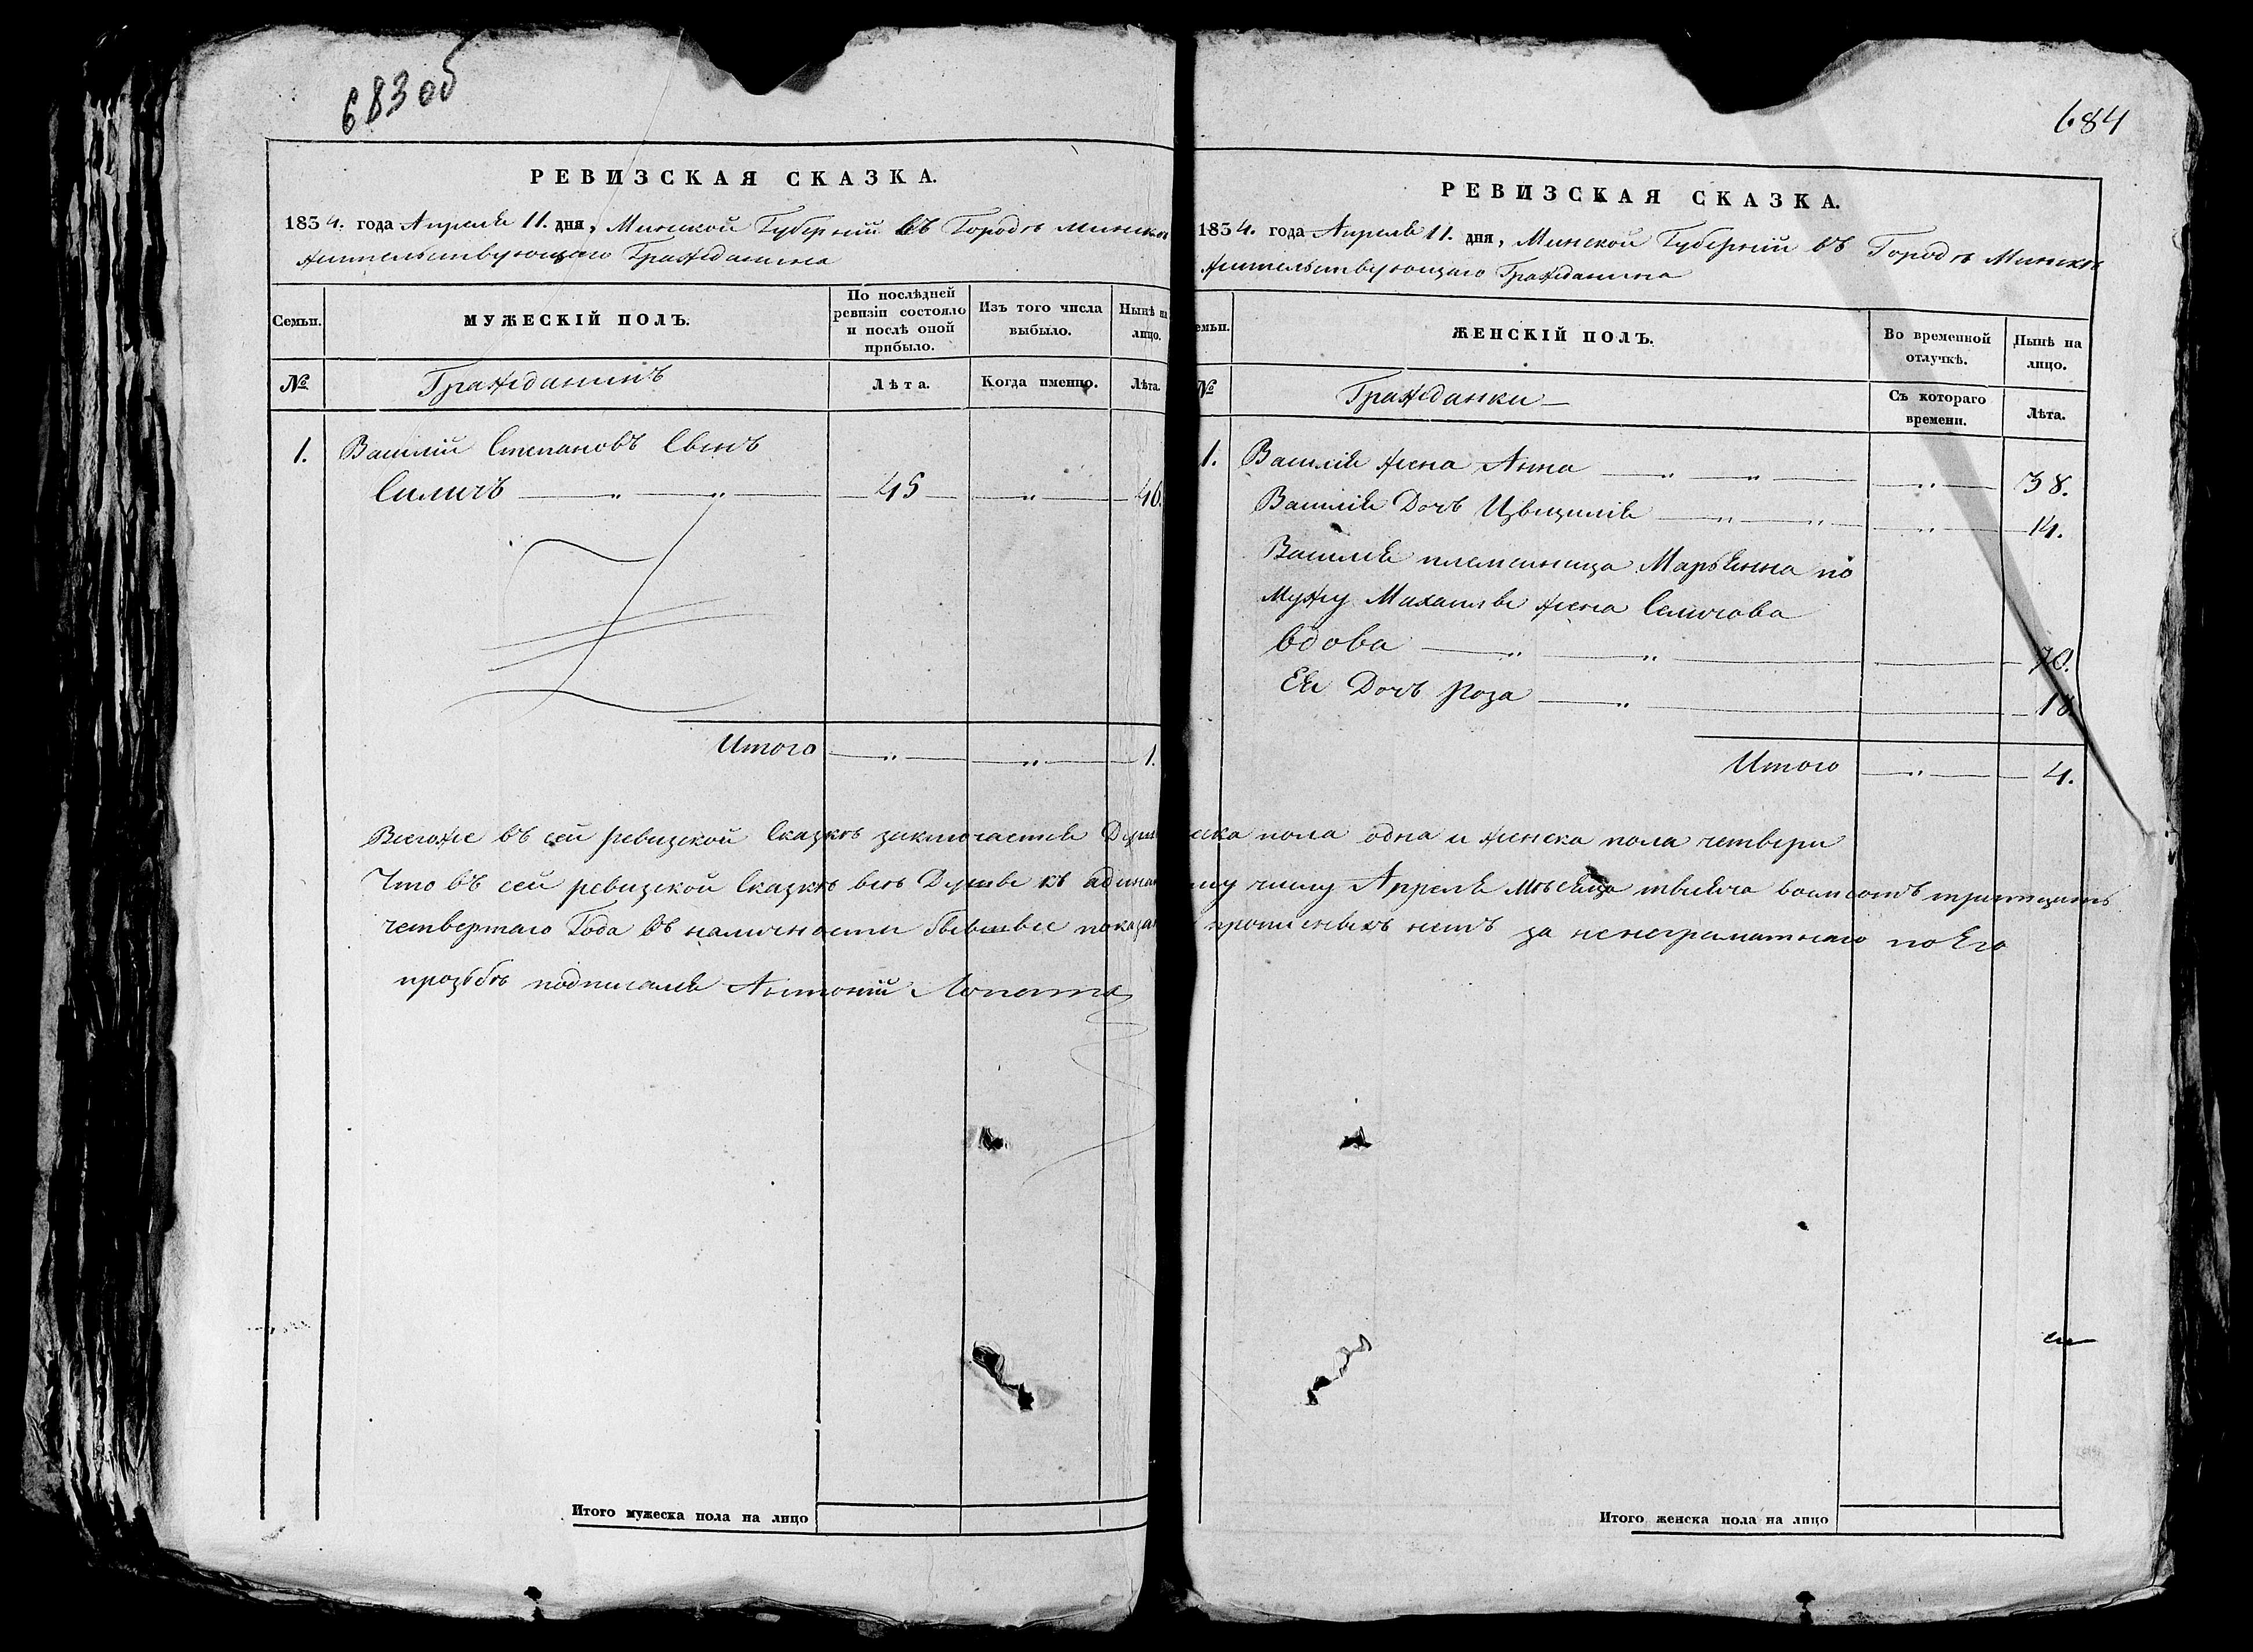 683 об
РЕВИЗСКАЯ СКАЗКА.
1834. года Апреля 11. дня, Минской Губерніи въ Городѣ Минскѣ
Жительствующаго Гражданина
Семьи.
МУЖЕСКІЙ ПОЛЪ.
По послѣдней
ревизіи состояло
и послѣ оной
прибыло.
Изъ того числа
выбыло.
Нынѣ на
лицо.
№
Гражданинъ
Лѣта.
Когда именно.
Лѣта.
1. Василій Степановъ Сынъ
Силичъ — „ — „ — 45 — „ — 46.
Итого — „ — „ — 1.
684
РЕВИЗСКАЯ СКАЗКА.
1834. года Апреля 11. дня, Минской Губерніи въ Городѣ Минскѣ
Жительствующаго Гражданина
емьи.
ЖЕНСКІЙ ПОЛЪ.
Во временной
отлучкѣ.
Нынѣ на
лицо.
№
Гражданки —
Съ котораго
времени.
Лѣта.
1. Василія жена Анна — „ — „ — „ — 38.
Василія Дочъ Цвецилія — „ — „ — „ — 14.
Василія племенница Марьянна по
мужу Михаилѣ жена Силичова
вдова — „ — „ — 70.
Ея Дочъ Роза — „ — 18
Итого — „ — 4.
Всегоже въ сей ревизской Сказкѣ заключается Душ еска пола одна и женска пола четвери
Что въ сей ревизской Сказкѣ все Душы къ адина му числу Апреля Мѣсяца тысяча восмсотъ тритцать
четвертаго Года въ наличности бывшые показа прописныхъ нетъ за ненеграматнаго по Его
прозьбѣ подписался Антоній Лопата
Итого мужеска пола на лицо
Итого женска пола на лицо